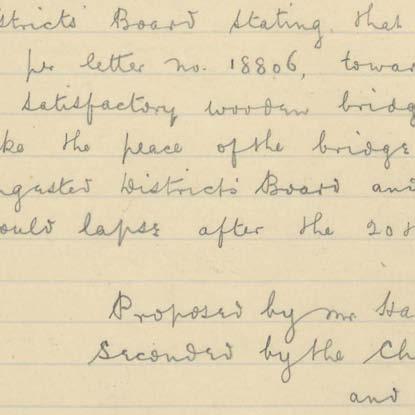 stricts' Board stating that
per letter no. 18806, towar
satisfactory wooden bridg
ke the peace of the bridge
ngested Districts' Board and
ould lapse after the 20th
Proposed by Mr. Ha
Seconded by the Ch
and